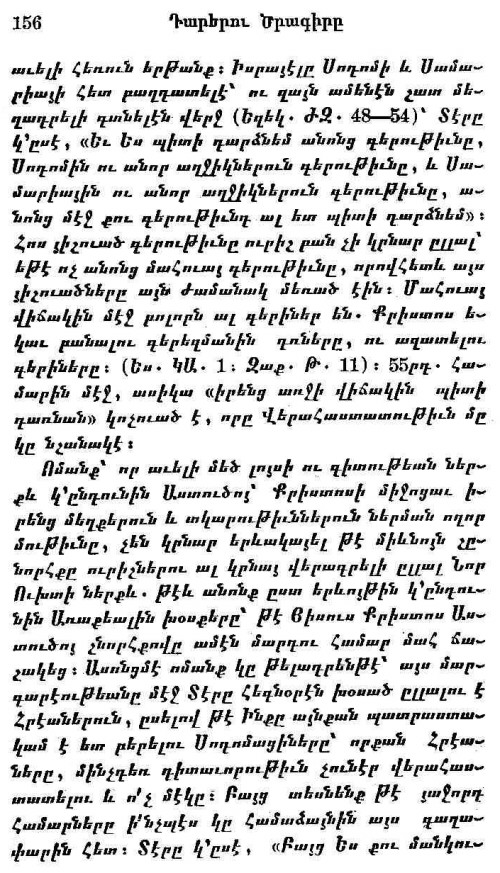 156 Դարերու Ծրագիրը
աւելի հեռուն երթանք։ Իսրայէլը Սոդոմի և Սամա-
րիայի հետ բաղդատելէ՝ ու զայն ամենէն շատ մե-
ղադրելի գտնելէն վերջ (Եզեկ. ԺԶ. 48—54)՝ Տէրը
կ՚ըսէ, «Եւ ես պիտի դարձնեմ անոնց գերութիւնը,
Սոդոմին ու անոր աղջիկներուն գերութիւնը, և Սա-
մարիային ու անոր աղջիկներուն գերութիւնը, ա-
նոնց մէջ քու գերութիւնդ ալ ետ պիտի դարձնեմ»։
Հոս յիշուած գերութիւնը ուրիշ բան չի կրնար ըլլալ՝
եթէ ոչ անոնց մահուայ գերութիւնը, որովհետև այս
յիշուածները այն ժամանակ մեռած էին։ Մահուայ
վիճակին մէջ բոլորն ալ գերիներ են. Քրիստոս ե-
կաւ բանալու գերեզմանին դռները, ու ազատելու
գերիները։ (Ես. ԿԱ. 1։ Զաք. Թ. 11)։ 55րդ. Հա-
մարին մէջ, ասիկա «իրենց առջի վիճակին պիտի
դառնան» կոչուած է, որը վերահաստատութիւն մը
կը նշանակէ։
Ոմանք՝ որ աւելի մեծ լոյսի ու գիտութեան ներ-
քև կ՚ընդունին Աստուծոյ՝ Քրիստոսի միջոցաւ ի-
րենց մեղքերուն և տկարութիւններուն ներման ողոր
մութիւնը, չեն կրնար երևակայել թէ միևնոյն շը-
նորհքը ուրիշներու ալ կրնայ վերագրելի ըլլալ Նոր
Ուխտի ներքև. թէև անոնք ըստ երևոյթին կ՚ընդու-
նին Առաքեալին խօսքերը՝ թէ Յիսուս Քրիստոս Աս-
տուծոյ շնորհքովը ամէն մարդու համար մահ ճա-
շակեց։ Ասոնցմէ ոմանք կը թելադրենթէ՝ այս մար-
գարէութեանը մէջ Տէրը հեգնօրէն խօսած ըլլալու է
Հրէաներուն, ըսելով թէ Ինքը այնքան պատրաստա-
կամ է ետ բերելու Սոդոմացիները՝ որքան Հրէա-
ները, մինչդեռ դիտաւորութիւն չունէր վերահաս-
տատելու և ո՛չ մէկը։ Բայց տեսնենք թէ յաջորդ
համարները ի՛նչպէս կը համաձայնին այս գաղա-
փարին հետ։ Տէրը կ՚ըսէ, «Բայց ես քու մանկու-